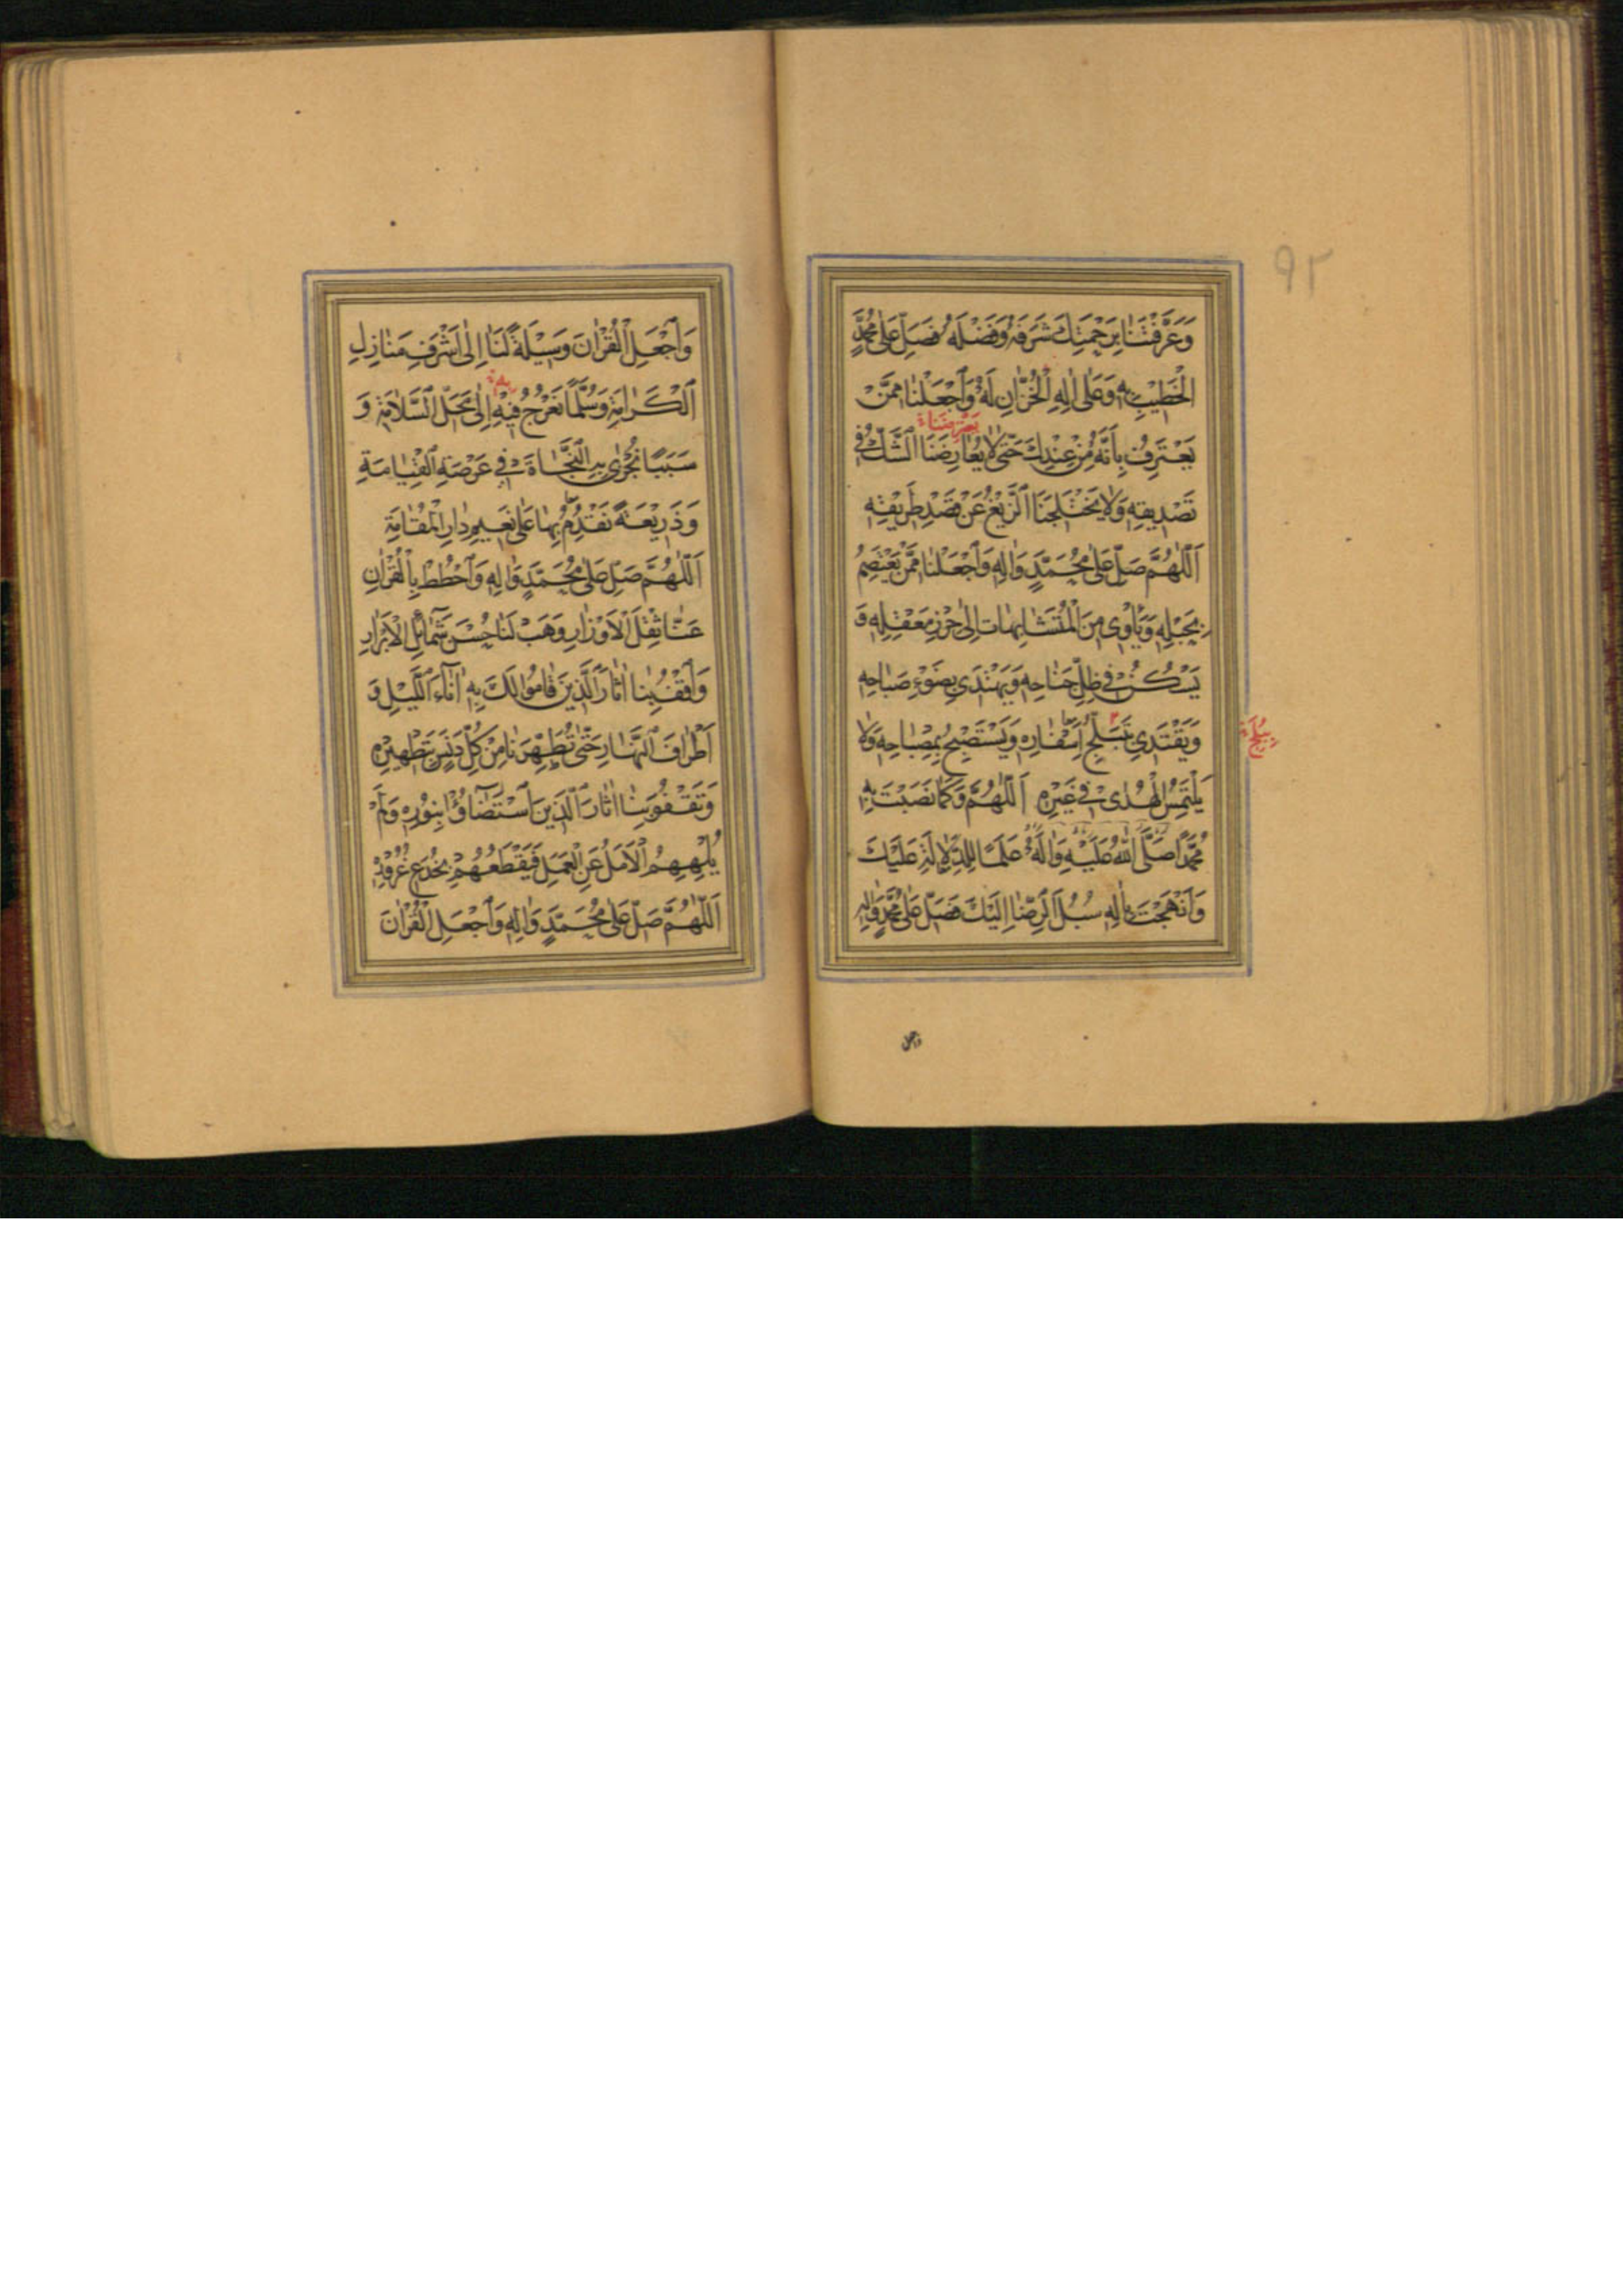 ٩٢
وَعَرَّفْتَنَا بِرَحْمَتِكَ شَرَفَهُ وَفَضْلَهُ فَصَلِّ عَلٰى مُحَمَّدٍ
الْخَطِيْبِ بِهِ وَعَلٰى اٰلِهِ الْخُزَّانِ لَهُ وَاجْعَلْنَا مِمَّنْ
يَعْتَرِضَنَا
يَعْتَرِفُ بِاَنَّهُ مِنْ عِنْدِكَ حَتّٰى لَا يُعَارِضَنَا الشَّكُّ فِي
تَصْدِيْقِهِ وَلَا يَخْتَلِجَنَا الزَّيْغُ عَنْ قَصْدِ طَرِيْقِهِ
اَللّٰهُمَّ صَلِّ عَلٰى مُحَمَّدٍ وَاٰلِهِ وَاجْعَلْنَا مِمَّنْ يَعْتَصِمُ
بِحَبْلِهِ وَيَأْوِي مِنَ الْمُتَشَابِهَاتِ اِلٰى حِرْزِ مَعْقِلِهِ وَ
يَسْكُنُ فِي ظِلِّ جَنَاحِهِ وَيَهْتَدِي بِضَوْءِ صَبَاحِهِ
وَيَقْتَدِي بِتَبَلُّجِ اَسْفَارِهِ وَيَسْتَصْبِحُ بِمِصْبَاحِهِ وَلَا
بِبَلَجِ
يَلْتَمِسُ الْهُدٰى فِي غَيْرِهِ اَللّٰهُمَّ وَكَمَا نَصَبْتَ بِهِ
مُحَمَّدًا صَلَّى اللّٰهُ عَلَيْهِ وَاٰلِهِ عَلَمًا لِلدَّلَالَةِ عَلَيْكَ
وَاَنْهَجْتَ بِاٰلِهِ سُبُلَ الرِّضَا اِلَيْكَ فَصَلِّ عَلٰى مُحَمَّدٍ وَاٰلِهِ
واجعل
وَاجْعَلِ الْقُرْاٰنَ وَسِيْلَةً لَنَا اِلٰى اَشْرَفِ مَنَازِلِ
الْكَرَامَةِ وَسُلَّمًا نَعْرُجُ فِيْهِ اِلٰى مَحَلِّ السَّلَامَةِ وَ
بِهِ
سَبَبًا نُجْزٰى بِهِ النَّجَاةَ فِي عَرْصَةِ الْقِيَامَةِ
وَذَرِيْعَةً نَقْدَمُ بِهَا عَلٰى نَعِيْمِ دَارِ الْمُقَامَةِ
اَللّٰهُمَّ صَلِّ عَلٰى مُحَمَّدٍ وَاٰلِهِ وَاحْطُطْ بِالْقُرْاٰنِ
عَنَّا ثِقْلَ الْاَوْزَارِ وَهَبْ لَنَا حُسْنَ شَمَائِلِ الْاَبْرَارِ
وَاقْفُ بِنَا اٰثَارَ الَّذِيْنَ قَامُوْا لَكَ بِهِ اٰنَاءَ اللَّيْلِ وَ
اَطْرَافَ النَّهَارِ حَتّٰى تُطَهِّرَنَا مِنْ كُلِّ دَنَسٍ بِتَطْهِيْرِهِ
وَتَقْفُوَ بِنَا اٰثَارَ الَّذِيْنَ اسْتَضَاؤُا بِنُوْرِهِ وَلَمْ
يُلْهِهِمُ الْاَمَلُ عَنِ الْعَمَلِ فَيَقْطَعَهُمْ بِخُدَعِ غُرُوْرِهِ
اَللّٰهُمَّ صَلِّ عَلٰى مُحَمَّدٍ وَاٰلِهِ وَاجْعَلِ الْقُرْاٰنَ